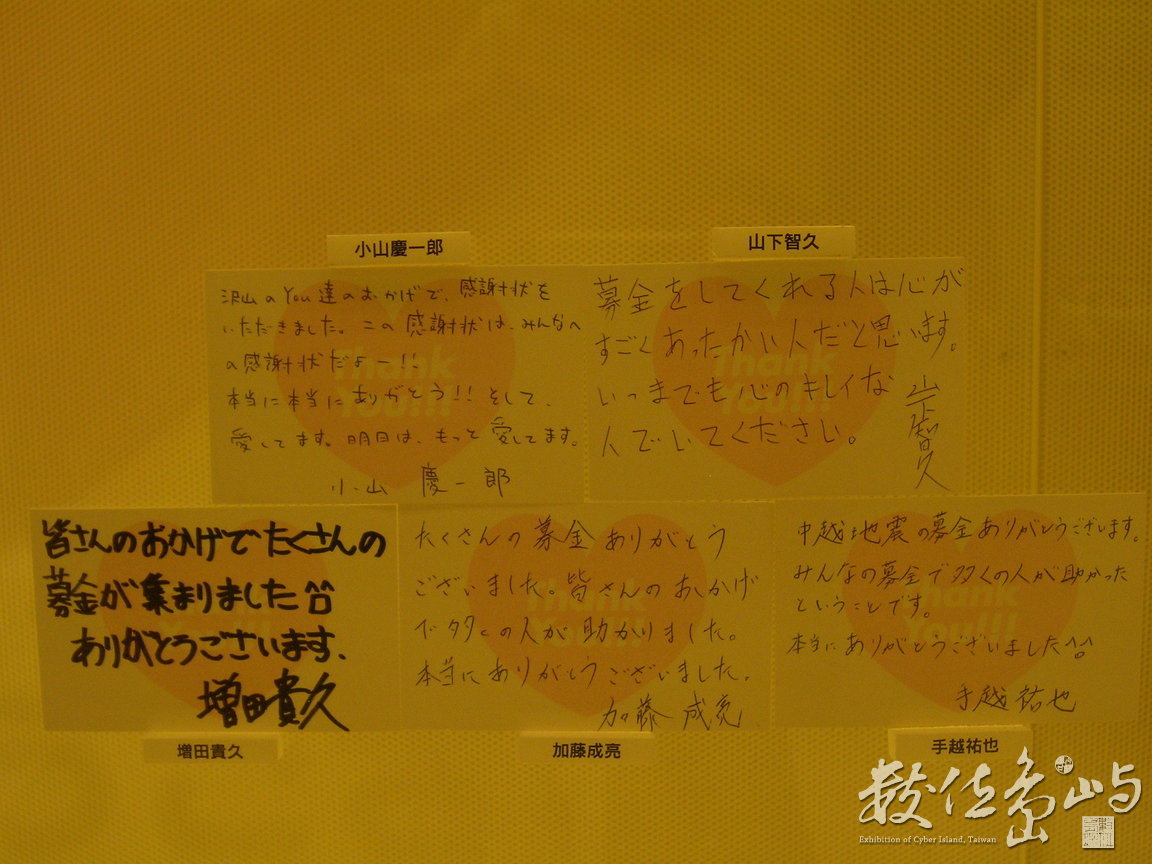 小山慶一郎
沢山のYou達のおかげで、感謝状を
いただきました。この感謝状は、みんなへ
の感謝状だよー!!
本当に本当にありがとう!!そして、
愛してます。明日は、もっと愛してます。
小山 慶一郎
Thank
You!!!
山下智久
募金をしてくれる人は心が
すごくあったかい人だと思います。
いつまでも心のキレイな
人でいてください。
山下智久
Thank
You!!!
皆さんのおかげでたくさんの
募金が集まりました^□^
ありがとうございます、
増田貴久
増田貴久
たくさんの募金ありがとう
ございました。皆さんのおかげ
で多くの人が助かりました。
本当にありがとうございました。
加藤 成亮
Thank
You!!!
加藤成亮
中越地震の募金ありがとうございます。
みんなの募金で多くの人が助かった
ということです。
本当にありがとうございました^o^
手越祐也
You!!!
手越祐也
數位島嶼
Exhibition of Cyber Island, Taiwan